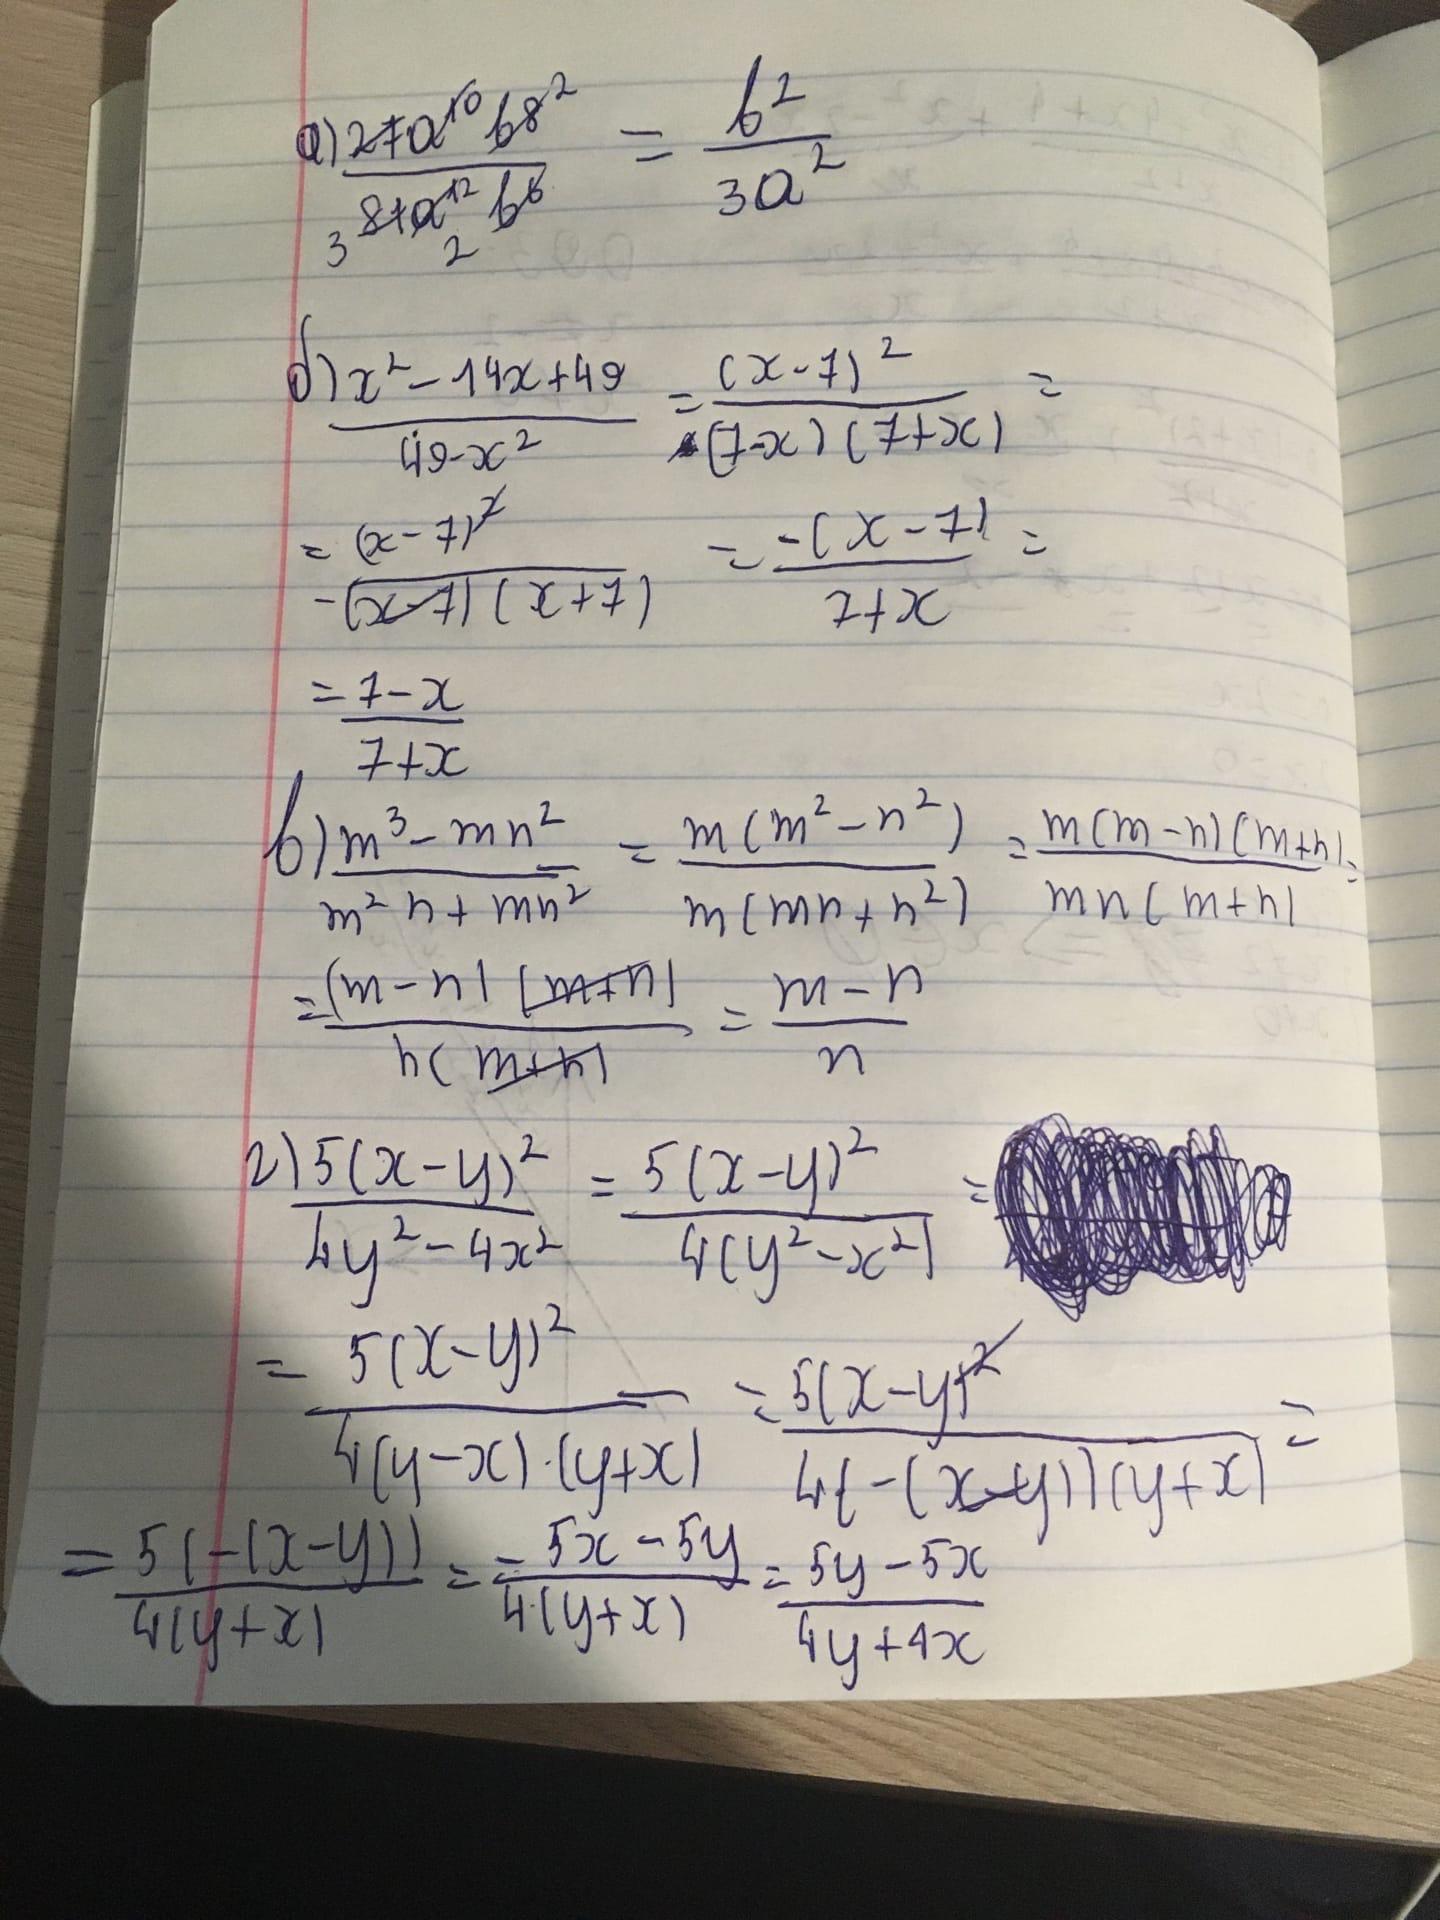 а) 27a¹⁰b⁸ ² / 3 81a¹² 2 b⁶ = b² / 3a²
б) x² - 14x + 49 / 49 - x² = (x - 7)² / (7 - x)(7 + x) =
= (x - 7)² / -(x - 7)(x + 7) = -(x - 7) / 7 + x =
= 7 - x / 7 + x
в) m³ - mn² / m²n + mn² = m(m² - n²) / m(mn + n²) = m(m - n)(m + n) / mn(m + n) =
= (m - n)(m + n) / n(m + n) = m - n / n
г) 5(x - y)² / 4y² - 4x² = 5(x - y)² / 4(y² - x²) =
= 5(x - y)² / 4(y - x)·(y + x) = 5(x - y)² / 4(-(x - y))(y + x) =
= 5(-(x - y)) / 4(y + x) = - 5x - 5y / 4·(y + x) = 5y - 5x / 4y + 4x